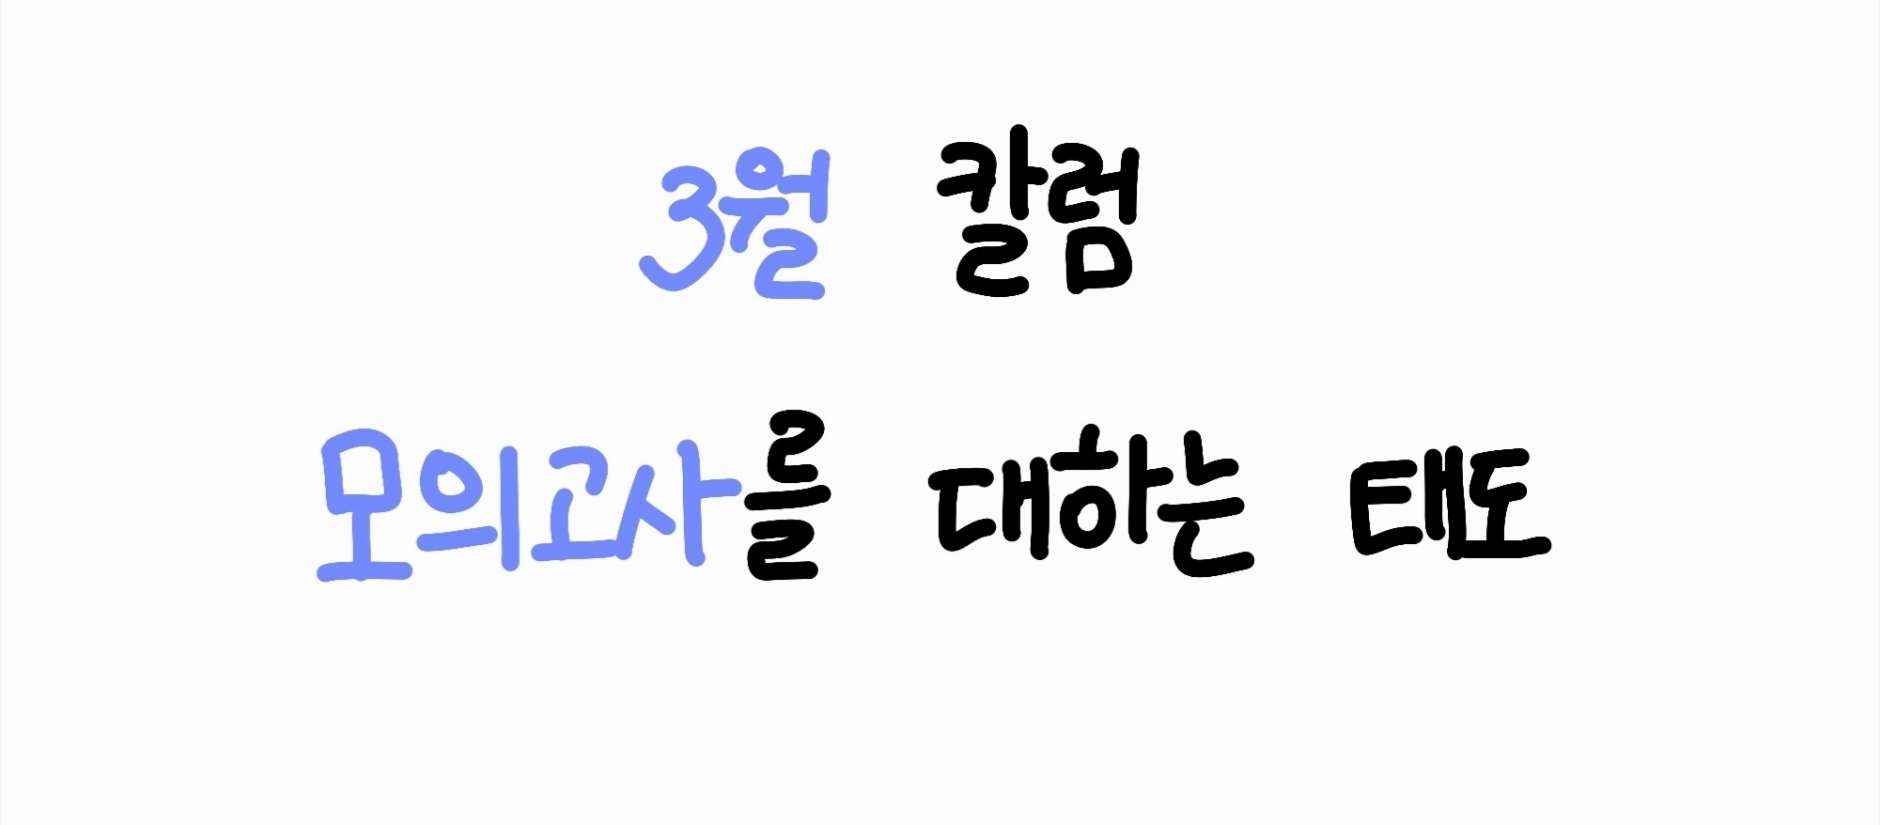 3월 칼럼
모의고사를 대하는 태도